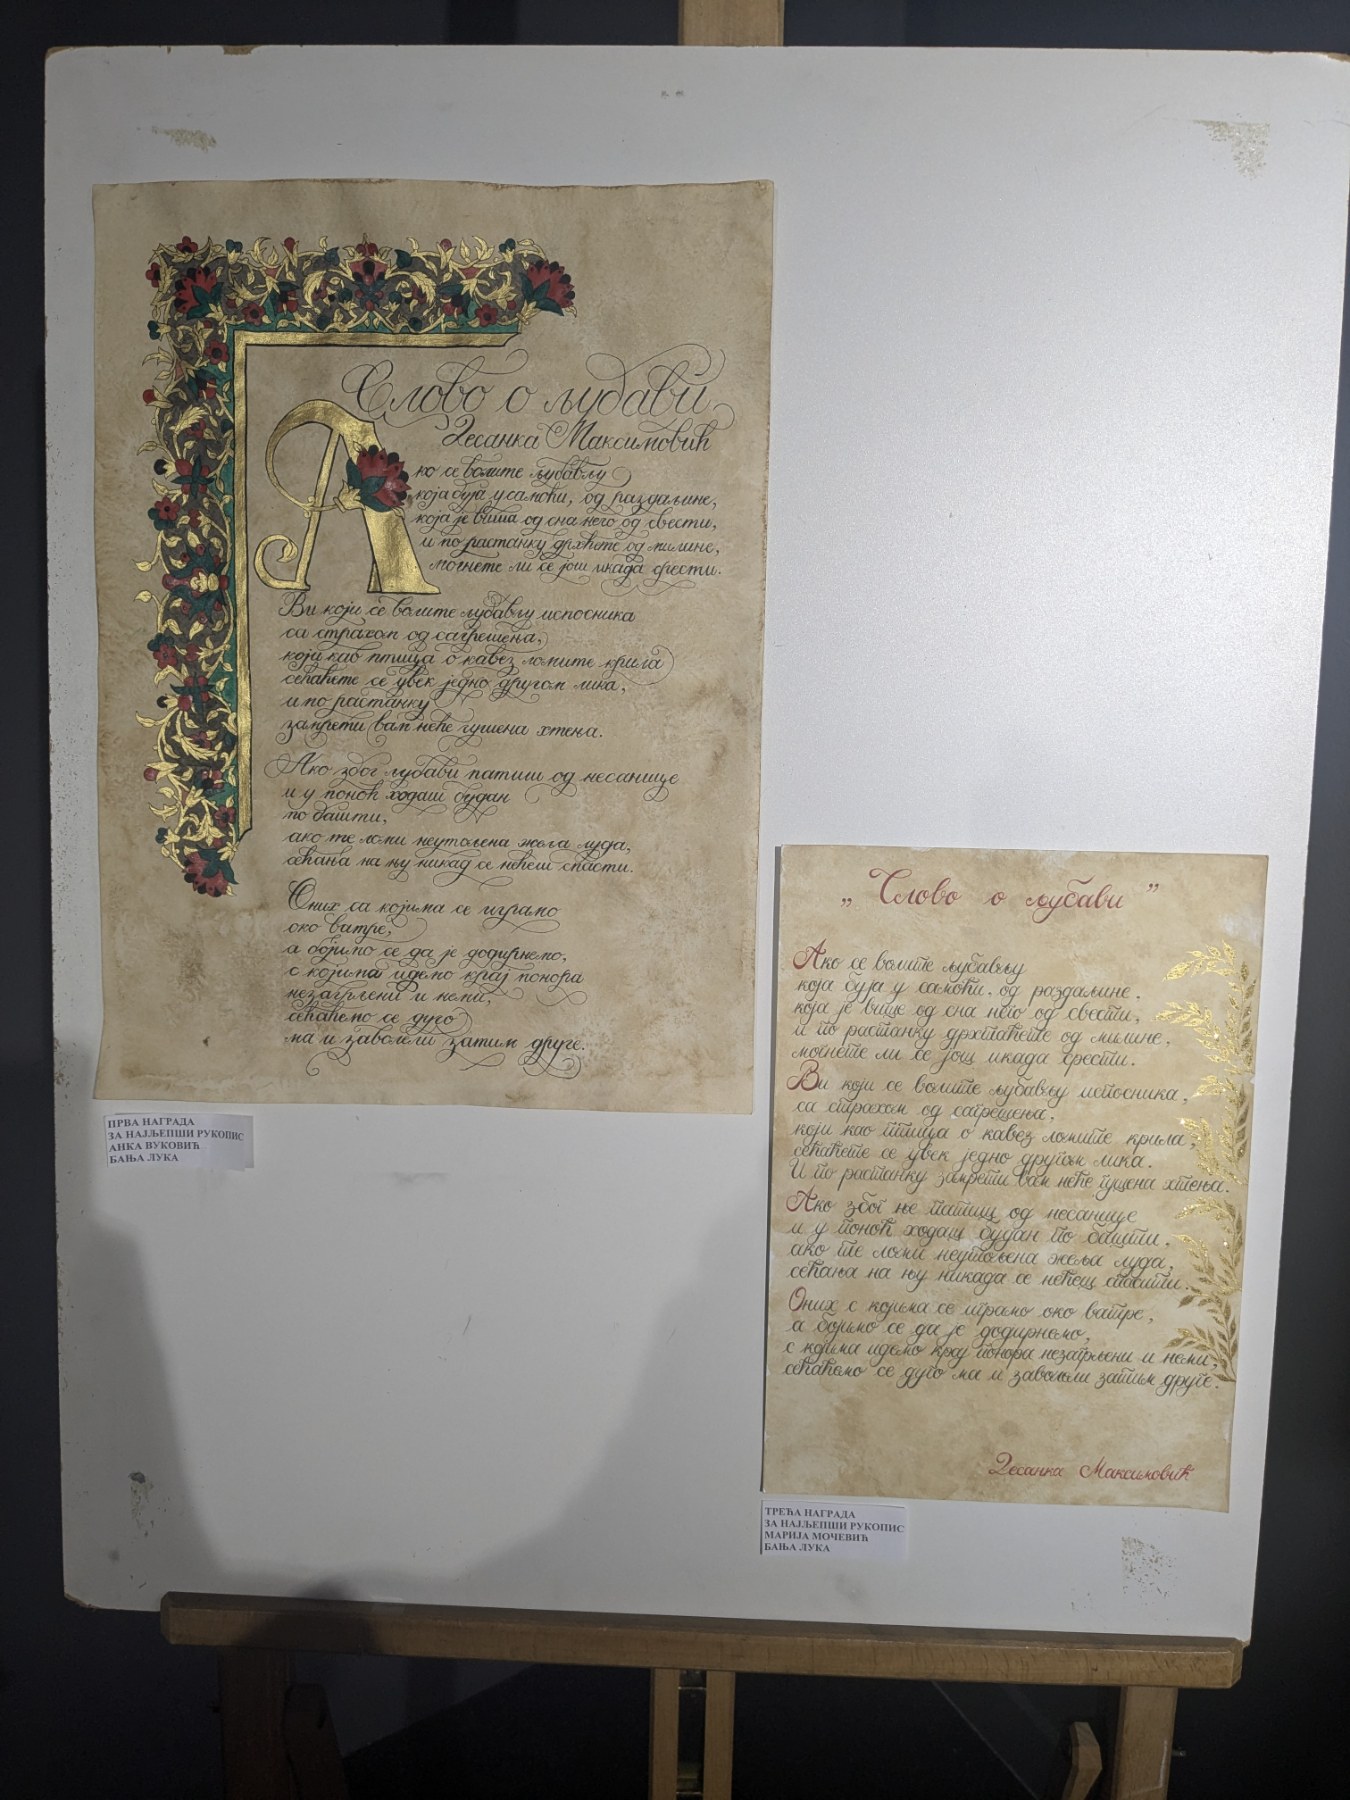 Слово о љубави
Десанка Максимовић
Ако се волите љубављу
која буја у самоћи, од раздаљине,
која је виша од сна него од свести,
и по растанку дрхћете од милине,
могнете ли се још икада срести.
Ви који се волите љубављу испосника
са страхом од сагрешења,
који као птица о кавез ломите крила
сећаћете се увек једно другом лика,
и по растанку
замрети вам неће гушена хтења.
Ако због љубави патиш од несанице
и у поноћ ходаш будан
по башти,
ако те ломи неутољена жеља луда,
сећања на њу никад се нећеш спасти.
Оних са којима се играмо
око ватре,
а бојимо се да је додирнемо,
с којима идемо крај понора
незагрљени и неми,
сећаћемо се дуго
ма и заволели затим друге.
ПРВА НАГРАДА
ЗА НАЈЉЕПШИ РУКОПИС
АНКА ВУКОВИЋ
БАЊА ЛУКА
„Слово о љубави”
Ако се волите љубављу
која буја у самоћи, од раздаљине,
која је више од сна него од свести,
и по растанку дрхтаћете од милине,
могнете ли се још икада срести.
Ви који се волите љубављу испосника,
са страхом од сагрешења,
који као птица о кавез ломите крила,
сећаћете се увек једно другом лика.
И по растанку замрети вам неће гушена хтења.
Ако због ње патиш од несанице
и у поноћ ходаш будан по башти,
ако те ломи неутољена жеља луда,
сећања на њу никада се нећеш спасити.
Оних с којма се играмо око ватре,
а бојмо се да је додирнемо,
с којма идемо крај понора незагрљени и неми,
сећаћемо се дуго ма и заволели затим друге.
Десанка Максимовић
ТРЕЋА НАГРАДА
ЗА НАЈЉЕПШИ РУКОПИС
МАРИЈА МОЧЕВИЋ
БАЊА ЛУКА